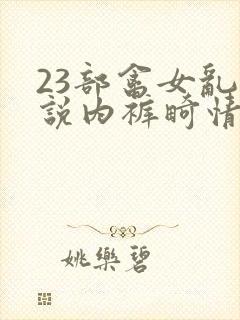 23部畜女乱
説内裤畸情
姚樂碧